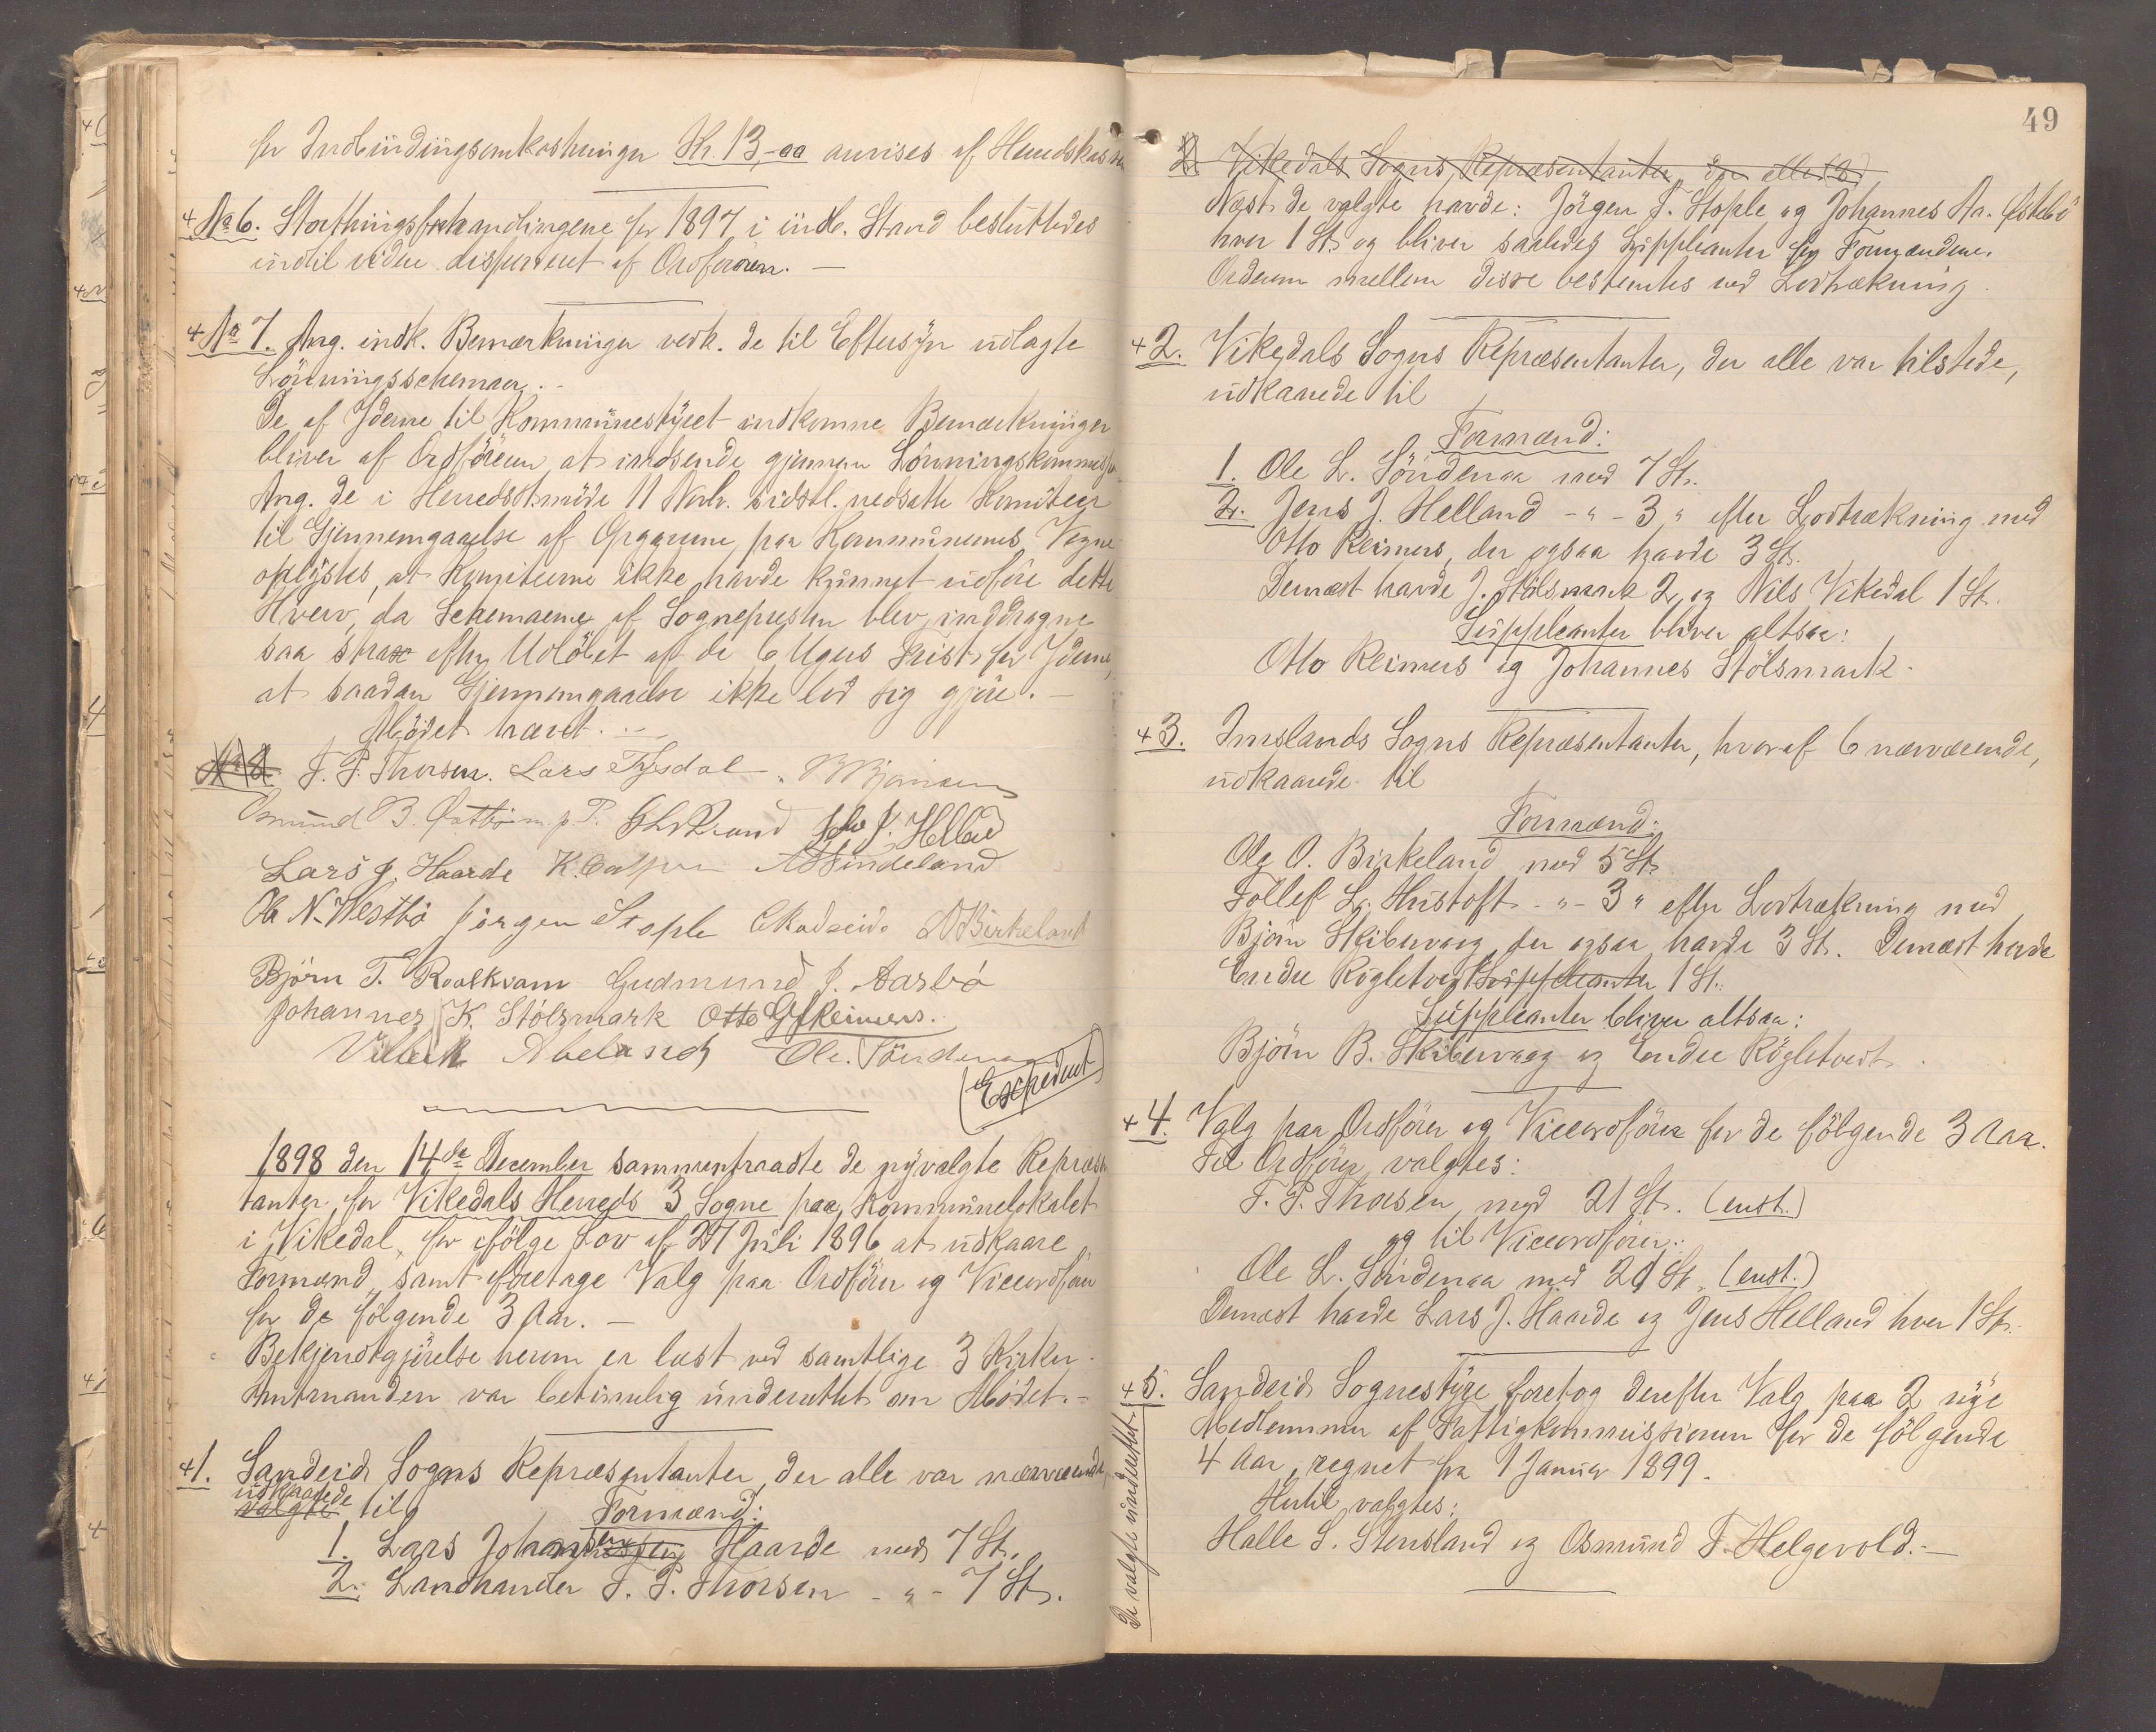 for Indbindingsomkostninger Kr. 13-00 anvises af Herredskassen
+ No 6. Storthingsforhandlingene for 1897 i indb. Stand besluttedes
indtil videre disponeret af Ordføreren. —
+ No 7. Ang. indk. Bemærkninger vedk. de til Eftersyn udlagte
Lönningsschemaer. -
De af Yderne til Kommunestyret indkomne Bemærkninger
bliver af Ordföreren at indsende gjennem Lönningskommis
Ang. de i Herredsstmöde 11 Novbr. sidstl. nedsatte Komiteer
til Gjennemgaaelse af Opgaverne paa Kommunernes Vegne
oplystes, at Komiteerne ikke havde kunnet udföre dette
Hverv, da Schemaerne af Sognepresten blev inddragne
saa strax efter Udlöbet af de 6 Ugers Frist for Yderne,
at saadan Gjennemgaaelse ikke lod sig gjöre. —
Mödet hævet. —
No 8. T. P. Thorsen. Lars Tysdal.
Osmund B. Jens J. Helland
Lars J. Haarde K. A Sindeland
Ole N. Westbö Jörgen Stople Birkeland
Björn T. Roalkvam Gudmund J. Aarbö
Johannes K. Stölsmark Otto Reimers.
Abeland Ole Söndenaa
(Expederet)
1898 den 14de December sammentraadte de nyvalgte Repræsen
tanter for Vikedals Herreds 3 Sogne paa Kommunelokalet
i Vikedal, for ifölge Lov af 27 Juli 1896 at udkaare
Formænd, samt foretage Valg paa Ordförer og Viceordförer
for de fölgende 3 Aar. —
Bekjendtgjörelse herom er læst ved samtlige 3 Kirker.
Amtmanden var betimelig underrettet om Mödet. -
+1. Sandeids Sogns Repræsentanter, der alle var nærværende,
udkaarede
valgte til
Formænd:
1. Lars Johansen Haarde med 7 St.
2. Landhandler T. P. Thorsen - " - 7 St.
49
2. Vikedals Sogns Repræsentanter, der alle (8)
Næst de valgte havde: Jörgen T. Stople og Johannes Aa. Østebö
hver 1 St. og bliver saaledes Suppleanter for Formændene.
Ordenen mellem disse bestemtes ved Lodtrækning.
+ 2. Vikedals Sogns Repræsentanter, der alle var tilstede,
udkaarede til
Formænd:
1. Ole L. Söndenaa med 7 St.
2. Jens J. Helland - " - 3 " efter Lodtrækning med
Otto Reimers, der ogsaa havde 3 St.
Dernæst havde J. Stölsmark 2 og Nils Vikedal 1 St.
Suppleanter bliver altsaa:
Otto Reimers og Johannes Stölsmark.
+ 3. Imslands Sogns Repræsentanter, hvoraf 6 nærværende,
udkaarede til
Formænd:
Ole O. Birkeland med 5 St.
Tollef L. Hustoft - " - 3 " efter Lodtrækning med
Björn Skibevaag, der ogsaa havde 3 St. Dernæst havde
Endre Rögletvedt Suppleanter 1 St.
Suppleanter bliver altsaa:
Björn B. Skibevaag og Endre Rögletvedt.
+ 4. Valg paa Ordförer og Viceordförer for de fölgende 3 Aar.
Til Ordförer valgtes:
T. P. Thorsen med 21 St. (enst.)
og til Viceordförer:
Ole L. Söndenaa med 20 St. (enst.)
Dernæst havde Lars J. Haarde og Jens Helland hver 1 St.
+ 5. Sandeids Sognestyre foretog derefter Valg paa 2 nye
Medlemmer af Fattigkommissionen for de fölgende
4 Aar, regnet fra 1 Januar 1899.
Hertil valgtes:
Halle S. Stensland og Osmund T. Helgevold. —
De valgte underrettet